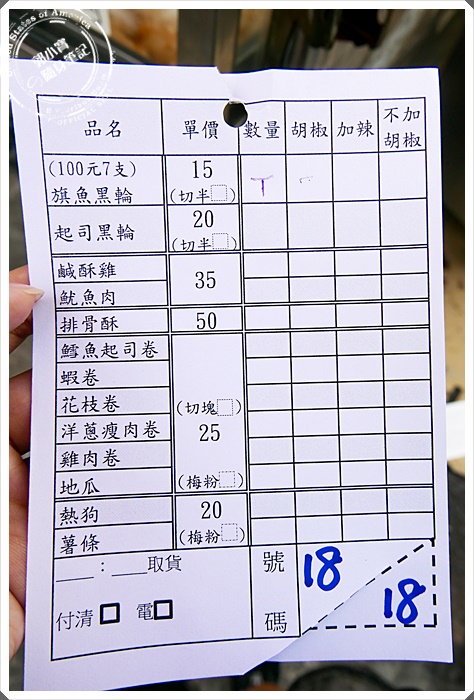 States of America
品名 單價 數量 胡椒 加辣 不加胡椒
(100元7支) 15
旗魚黑輪 (切半□) T -
起司黑輪 20
(切半□)
鹹酥雞
魷魚肉 35
排骨酥 50
鱈魚起司卷
蝦卷
花枝卷 (切塊□)
洋蔥瘦肉卷 25
雞肉卷
地瓜 (梅粉□)
熱狗 20
薯條 (梅粉□)
___:___取貨 號 18
付清□ 電□ 碼 18